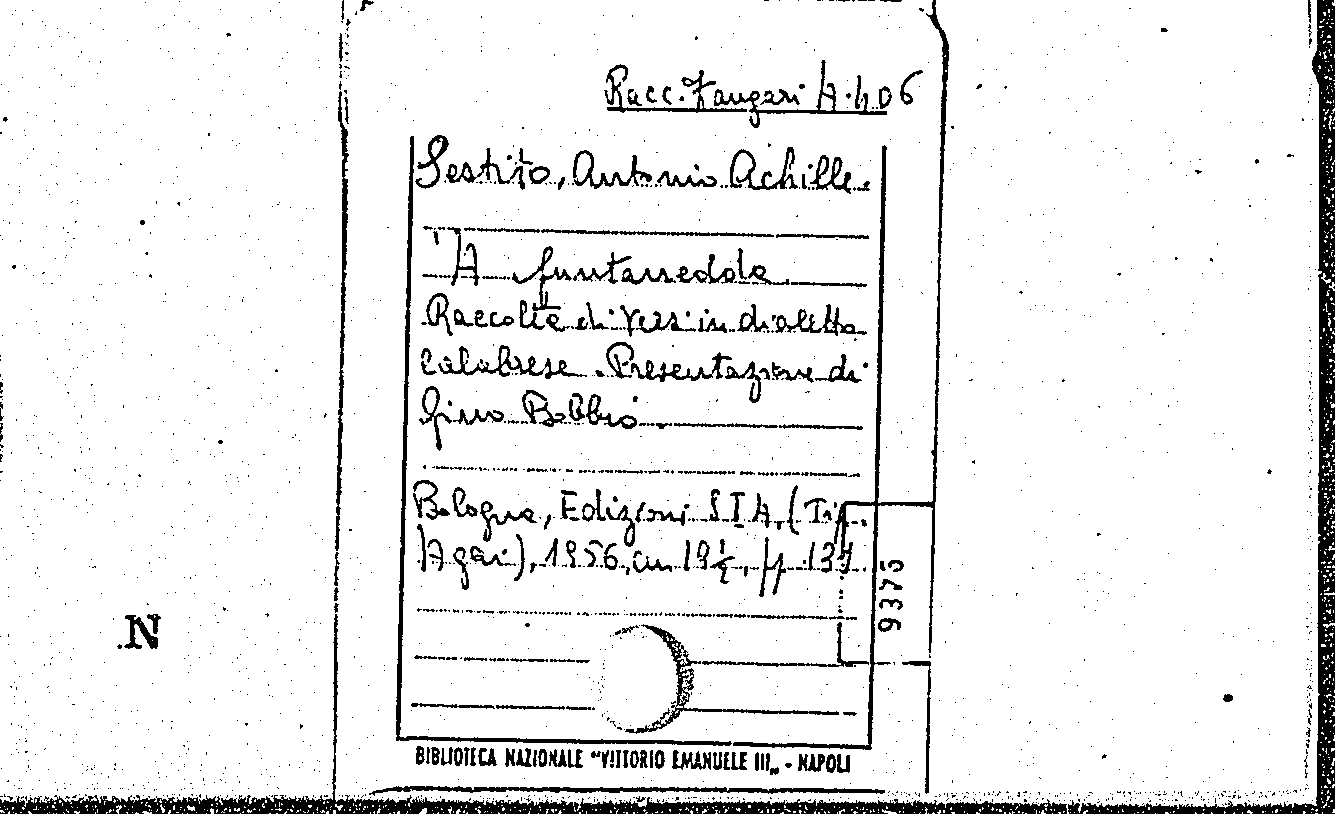 Racc. Zangari A. 406
Sestito, Antonio Achille.
'A funtanedda.
Raccolta di versi in dialetto
calabrese. Presentazione di
Gino Bobbio.
Bologna, Edizioni S I A, (Tip.
Agai), 1956, cm 19½, pp
9375
.N
BIBLIOTECA NAZIONALE "VITTORIO EMANUELE III„ - NAPOLI